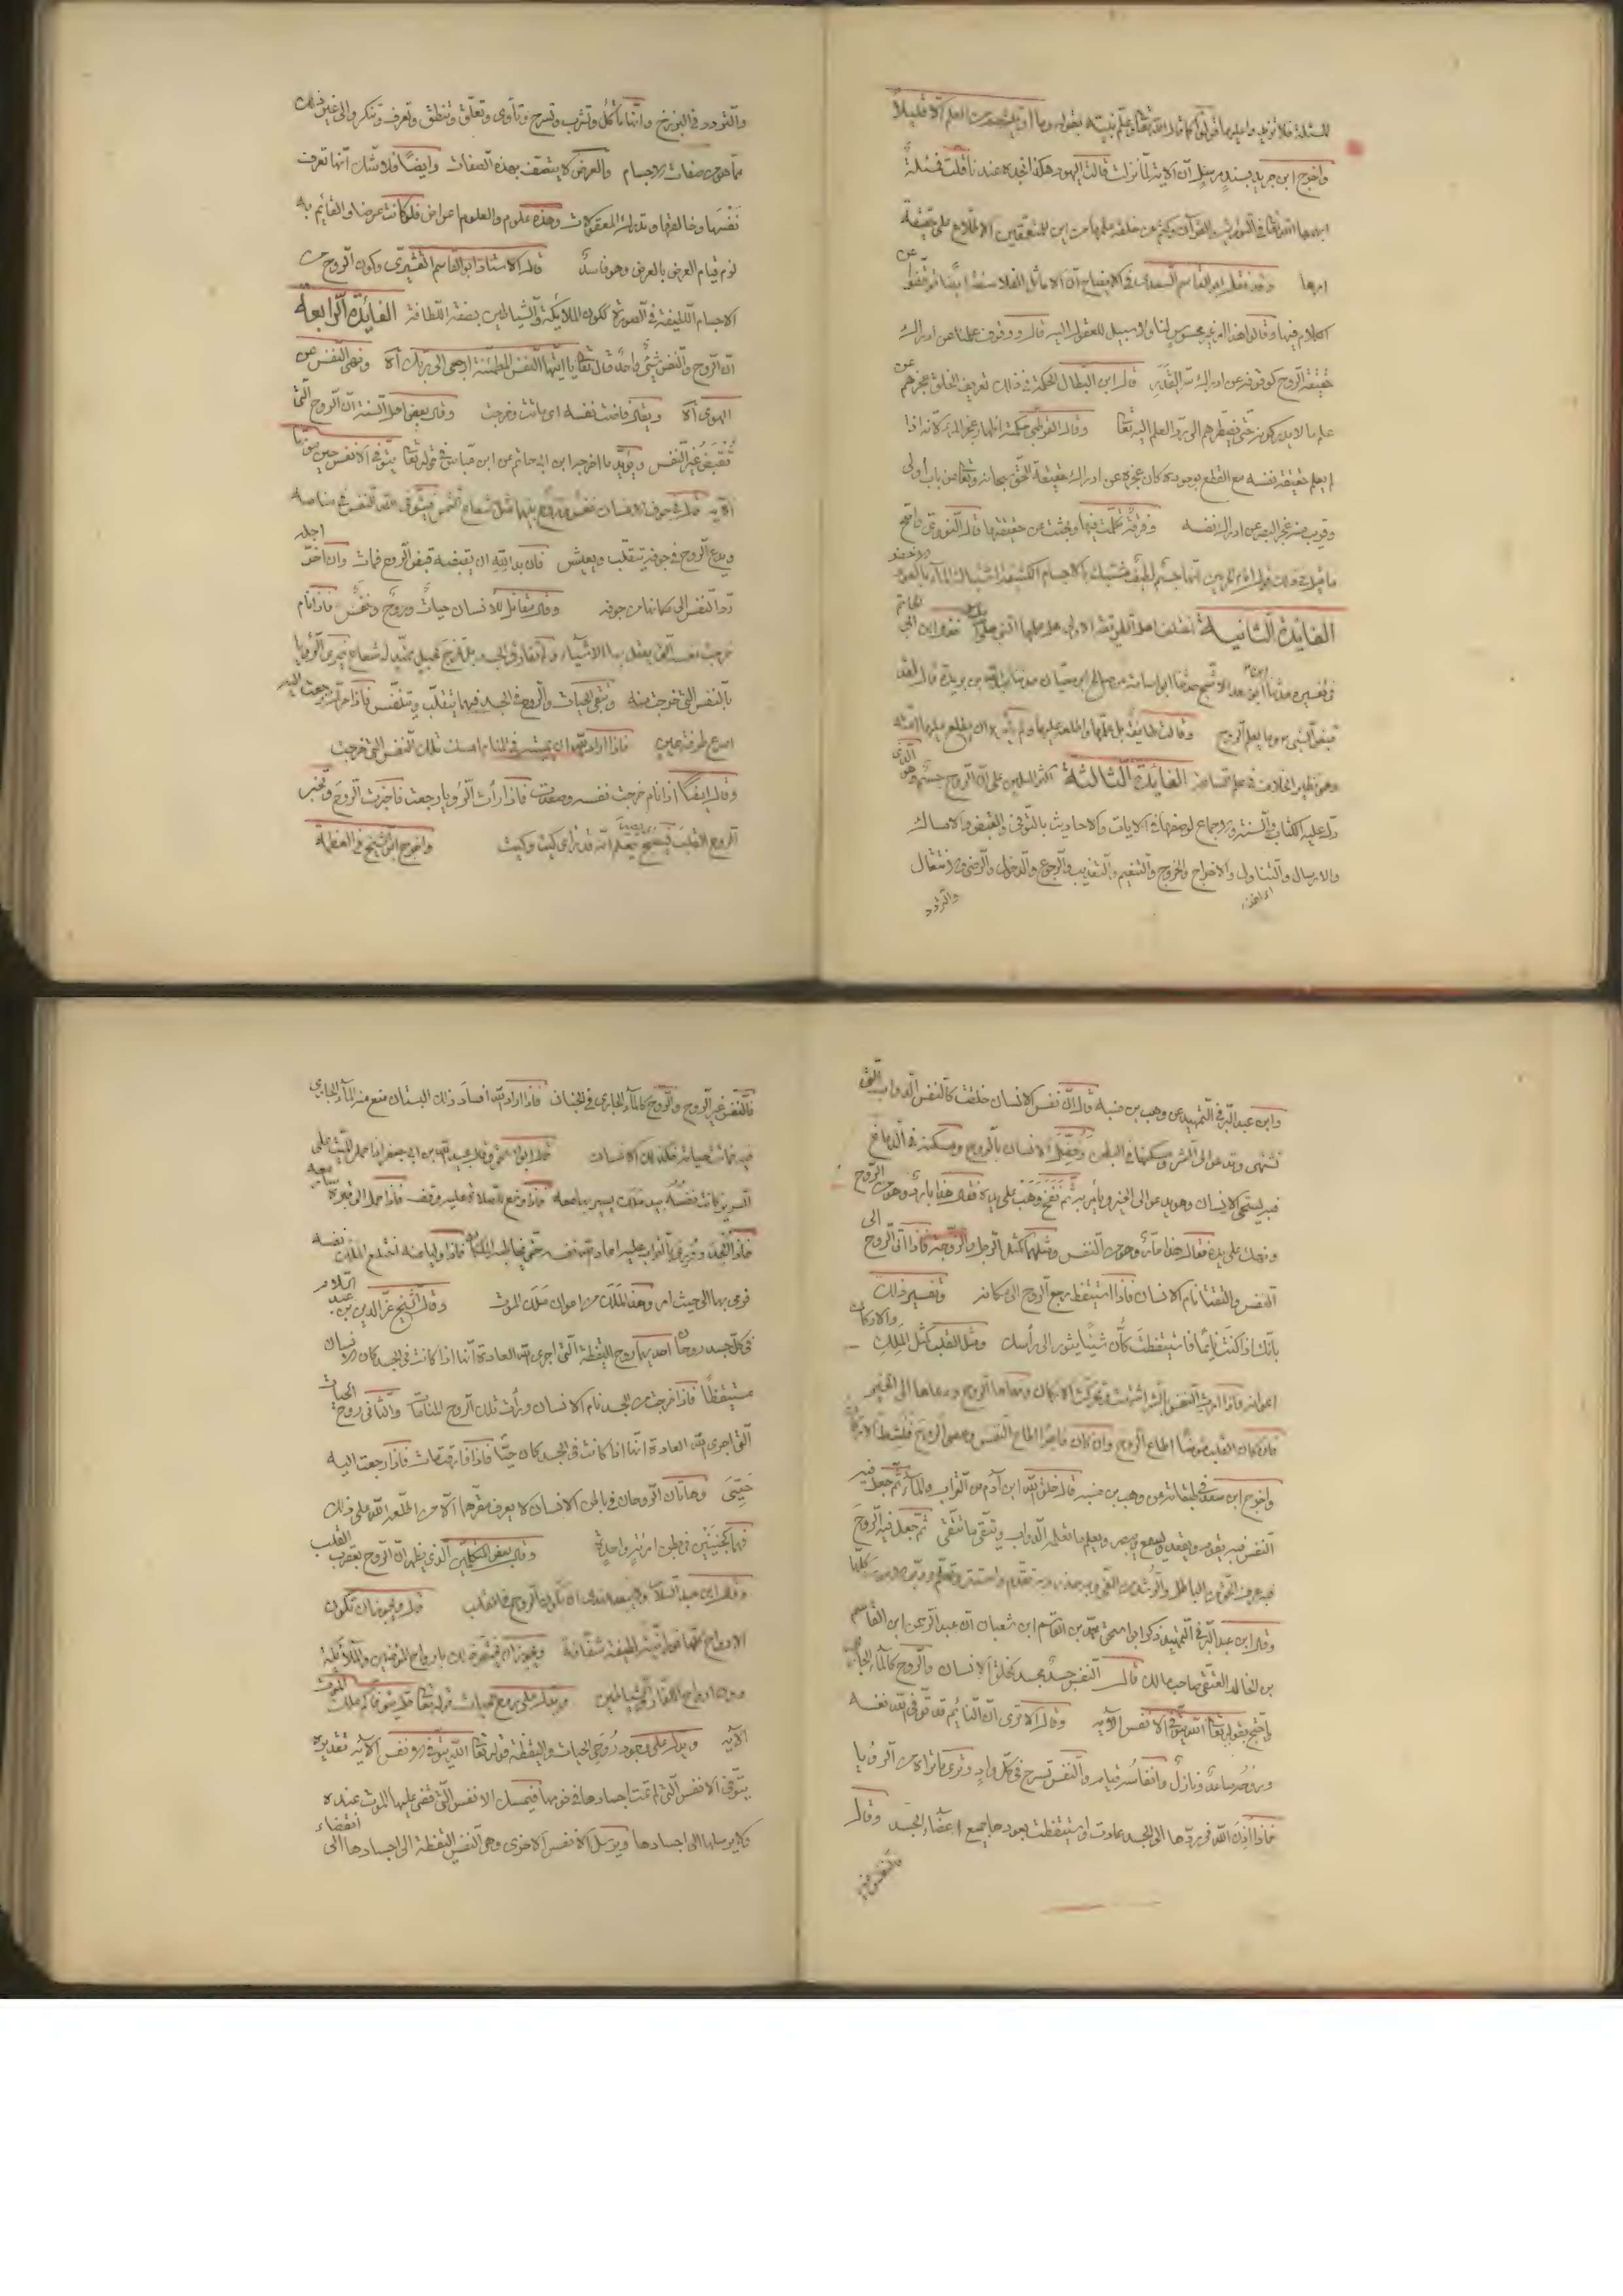 للمسئلة فلا نزيد وا عليها فنقول كما قال الله تعالى وعلم نبيه بقوله وما اوتيتم من العلم الا قليلاً
واخرج ابن جرير بسند مرسل ان الاية لما نزلت قالت اليهود هكذا نجده عندنا قلت فمسئلة
ابهمها الله تعالى في التورية والقرآن وكتم عن خلقه علمها من اين للمتعمقين الاطلاع على حقيقة
امرها وقد نقل ابو القاسم السعدى في الافصاح ان الاماثل الفلاسفة ايضا توقفوا عن
الكلام فيها وقالوا هذا امر غير محسوس لنا ولا سبيل للعقول اليه قال ووقوف علمنا عن ادراك
حقيقة الروح كوقوفه عن ادراك سر القدر قال ابن البطال الحكمة في ذلك تعريف الخلق عجزهم عن
علم ما لا يدركونه حتى يضطرهم الى رد العلم اليه تعالى وقال القرطبى حكمته اظهار عجز المرء لانه اذا
لم يعلم حقيقة نفسه مع القطع بوجوده كان عجزه عن ادراك حقيقة الحق سبحانه وتعالى من باب اولى
وقريب منه عجز البصر عن ادراك نفسه وفرقة تكلمت فيها وبحثت عن حقيقتها قال النووى واصح
ما قيل في ذلك قول امام الحرمين انها جسم لطيف مشتبك بالاجسام الكثيفة اشتباك الماء بالعود الاخضر
الفائدة الثانية اختلف اهل الطريقة الاولى هل علمها النبى صلى فقال ابن ابى حاتم
في تفسيره حدثنا ابو سعد الاشج حدثنا ابو اسامة عن صالح ابن حيان حدثنا عبد الله بن بريدة قال لقد
قبض النبى وما يعلم الروح وقالت طايفة بل علمها واطلعه عليها ولم يأمره ان يطلع عليها امته
وهو نظير الخلاف في علم الساعة الفائدة الثالثة اكثر المسلمين على ان الروح جسم وهو الذى
دل عليه الكتاب والسنة والاجماع لوصفها في الايات والاحاديث بالتوفى والقبض والامساك
والارسال والتناول والاخراج والخروج والتنعيم والتعذيب والرجوع والدخول والرضى والانتقال
والتردد
والتردد في البرزخ وانها تأكل وتشرب وتسرح وتأوى وتعلق وتنطق وتعرف وتنكر والى غير ذلك
مما هو من صفات الاجسام والعرض لا يتصف بهذه الصفات وايضاً فلا شك انها تعرف
نفسها وخالقها وتدرك المعقولات وهذه علوم والعلوم اعراض فلو كانت عرضا والقائم به
لزم قيام العرض بالعرض وهو فاسد قال الاستاذ ابو القاسم القشيرى وكون الروح من
الاجسام اللطيفة في الصورة ككون الملايكة والشياطين بصفة اللطافة الفائدة الرابعة
ان الروح والنفس شئ واحد قال تعالى يا ايتها النفس المطمئنة ارجعى الى ربك الاٰ ونهى النفس عن
الهوى الاٰ ويقال فاضت نفسه اى ماتت وخرجت وقال بعض اهل السنة ان الروح التى
تقبض غير النفس ويؤيد ما اخرجه ابن ابى حاتم عن ابن عباس في قوله تعالى يتوفى الانفس حين موتها
الاية قال في جوف الانسان نفس وروح بينهما مثل شعاع الشمس فيتوفى الله النفس في منامه
ويدع الروح في جوفه يتقلب ويعيش فان بدا لله ان يقبضه قبض الروح فمات وان اخر اجله
رد النفس الى مكانها من جوفه وقال مقاتل للانسان حياة وروح ونفس فاذا نام
خرجت نفسه التى يعقل بها الاشياء ولم تفارق الجسد بل تخرج كحبل ممتد له شعاع فيرى الرؤيا
بالنفس التى خرجت منه وتبقى الحيات والروح في الجسد فبهما يتقلب ويتنفس فاذا حرك رجعت اليه
اسرع طرفة عين فاذا اراد الله ان يميته في المنام امسك تلك النفس التى خرجت
وقال ايضاً اذا نام خرجت نفسه وصعدت فاذا رأت الرؤيا رجعت فاخبرت الروح وتخبر
الروح القلب فيصبح يعلم انه قد رأى كيت وكيت واخرج ابو الشيخ في العظمة
وابن عبد البر في التمهيد عن وهب بن منبه قال ان نفس الانسان خلقت كالنفس الدواب التى
تشتهى وتدعو الى الشر ومسكنها في البطن وفضل الانسان بالروح ومسكنه في الدماغ
فبه يستحى الانسان وهو يدعو الى الخير ويأمر به ثم نفخ وهب على يده فقال هذا بارد وهو من الروح
وتهك على يده فقال هذا حار وهو من النفس ومثلهما كمثل الرجل والزوجة فاذا اتى الروح الى
النفس والتقتا نام الانسان فاذا استيقظ رجع الروح الى مكانه وتفسير ذلك
بانك اذا كنت نائما فاستيقظت كأن شيئا يثور الى رأسك ومثل القلب كمثل الملك والاركان
اعوانه فاذا امرت النفس بالشر اشتهت وتحركت الاركان ونهاها الروح ودعاها الى الخير
فان كان القلب مؤمنا اطاع الروح وان كان فاجرا اطاع النفس وعصى الروح فتنشط الاركان
واخرج ابن سعد في طبقاته عن وهب بن منبه قال خلق الله ابن آدم من التراب والماء ثم جعل فيه
النفس فبه يقوم ويقعد ويسمع ويبصر ويعلم ما تعلم الدواب ويتقى ما تتقى ثم جعل فيه الروح
فبه عرف الحق من الباطل والرشد من الغى وبه حذر وتقدم واستتر وتعلم ودبر الامور كلها
وقال ابن عبد البر في التمهيد ذكر ابو اسحق محمد بن القاسم ابن شعبان ان عبد الرحمن ابن القاسم
بن الخالد العتقى صاحب مالك قال النفس جسد مجسد كخلق الانسان والروح كالماء الجارى
واحتج بقوله تعالى الله يتوفى الانفس الاية وقال الا ترى ان النائم قد توفى الله نفسه
وروحه صاعد ونازل وانفاسه قيامه والنفس تسرح في كل واد وترى ما تراه من الرؤيا
فاذا اذن الله في ردها الى الجسد عادت واستيقظت بعودها جميع اعضاء الجسد وقال
فالنفس غير
فالنفس غير الروح والروح كالماء الجارى في الجنان فاذا اراد الله افساد ذلك البستان منع منه الماء الجارى
فيه فماتت حياته فكذلك الانسان قال ابو اسحق وقال عبيد الله بن ابى جعفر اذا حمل الميت على
السرير كانت نفسه بيد ملك يسير بها معه فاذا وضع للصلاة عليه وقف فاذا حمل الى قبره سار معه
فاذا الحد وورى بالتراب عليه اعاد الله نفسه حتى يخاطبه الملكان فاذا وليا عنه اختلع الملك نفسه
فرمى بها الى حيث امر وهذا الملك من اعوان ملك الموت وقال الشيخ عز الدين بن عبد السلام
في كل جسد روحان احديها روح اليقظة التى اجرى الله العادة انها اذا كانت في الجسد كان الانسان
مستيقظاً فاذا خرجت من الجسد نام الانسان ورأت تلك الروح المنامات والثانى روح الحيات
التى اجرى الله العادة انها اذا كانت في الجسد كان حيّا فاذا فارقته مات فاذا رجعت اليه
حيى وهاتان الروحان في باطن الانسان لا يعرف مقرهما الا من اطلعه الله على ذلك
فهما كجنينين في بطن امرأة واحدة وقال بعض المتكلمين الذى يظهر ان الروح بقرب القلب
وقال ابن عبد السلام ولا يبعد عندى ان تكون الروح في القلب قال ويجوز ان تكون
الارواح كلها نورانية لطيفة شفافة ويجوز ان يختص ذلك بارواح المؤمنين والملائكة
دون ارواح الكفار والشياطين ويدل على روح الحيات قوله تعالى قل يتوفاكم ملك الموت
الآية ويدل على وجود روحى الحيات واليقظة قوله تعالى الله يتوفى الانفس الاية تقديره
يتوفى الانفس التى لم تمت اجسادها في نومها فيمسك الانفس التى قضى عليها الموت عنده
ولا يرسلها الى اجسادها ويرسل الانفس الاخرى وهى النفس اليقظة الى اجسادها الى انقضاء